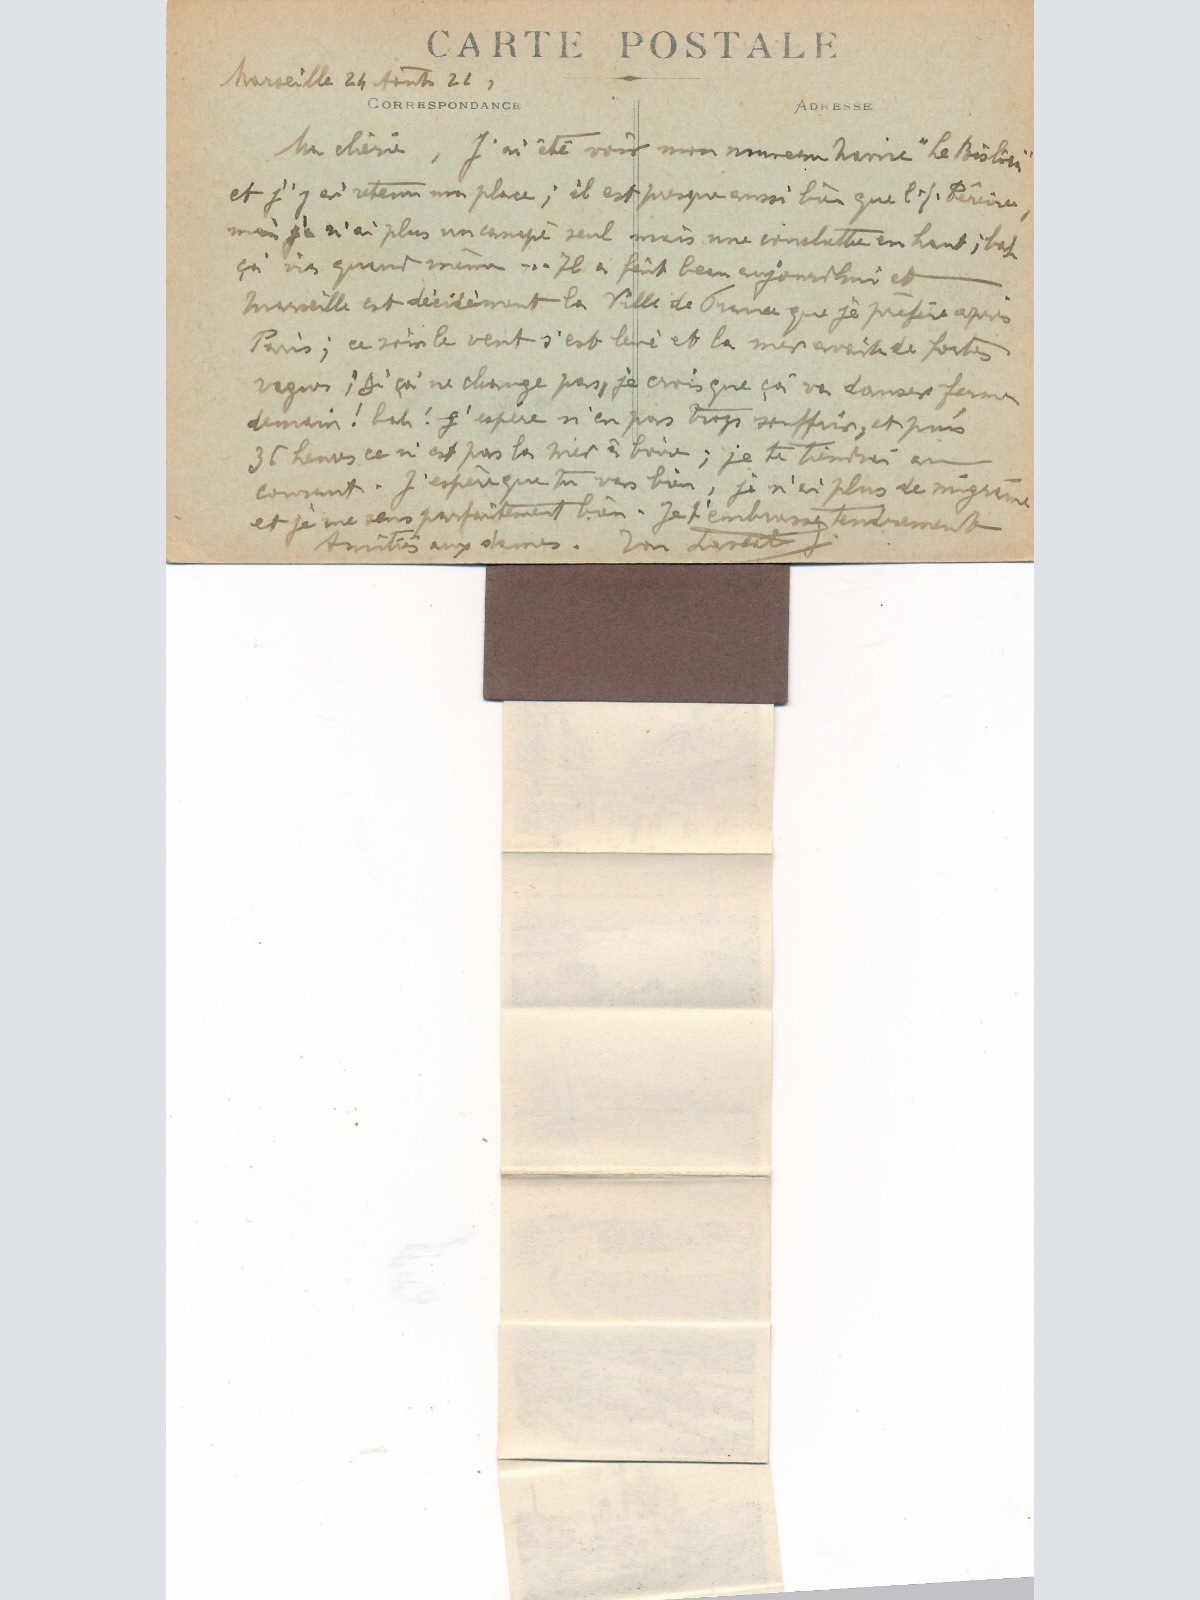 CARTE POSTALE
Marseille 24 Août 21,
CORRESPONDANCE
ADRESSE
Ma chérie, J'ai été voir mon nouveau navire "Le
et j'y ai retenu ma place; il est presque aussi bien que l'I. Péreire,
mais je n'ai plus un canapé seul mais une couchette en haut; bah
ça ira quand même ... Il a fait beau aujourd'hui et
Marseille est décidément la Ville de France que je préfère après
Paris; ce soir le vent s'est levé et la mer avait de fortes
vagues; si ça ne change pas, je crois que ça va danser ferme
demain! bah! j'espère n'en pas trop souffrir, et puis
36 heures ce n'est pas la mer à boire; je te tiendrai au
courant. J'espère que tu vas bien, je n'ai plus de migraine
et je me sens parfaitement bien. Je t'embrasse tendrement
Amitiés aux dames. Ton